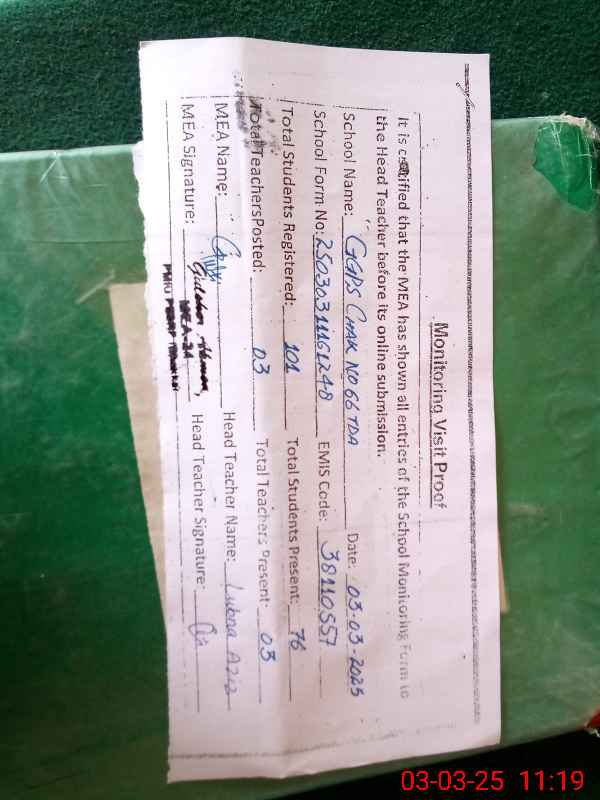 Monitoring Visit Proof
It is certified that the MEA has shown all entries of the School Monitoring Form to
the Head Teacher before its online submission.
School Name: GGPS CHAK NO 66 TDA Date: 03-03-2025
School Form No: 25030311161248 EMIS Code: 38110557
Total Students Registered: 101 Total Students Present: 76
Total TeachersPosted: 03 Total Teachers Present: 03
MEA Name: Head Teacher Name: Lubna Aziz
MEA Signature: Head Teacher Signature:
MEA-24
03-03-25 11:19